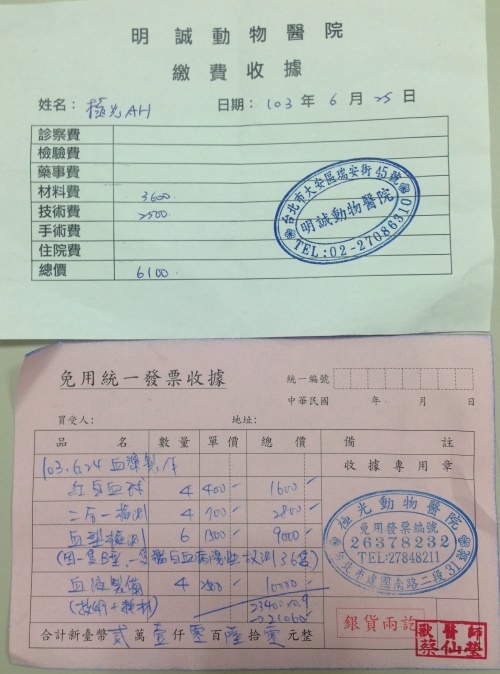 明誠動物醫院
繳費收據
姓名: 極光AH 日期: 103 年 6 月 25 日
診察費
檢驗費
藥事費
材料費 3600.
技術費 2500.
手術費
住院費
總價 6100.
台北市大安區瑞安街45號
明誠動物醫院
TEL:02-27086310
免用統一發票收據
統一編號
中華民國 年 月 日
買受人: 地址:
品名 數量 單價 總價 備註
收據專用章
103.6.24 血漿製作
紅百血球 4 400 1600
二合一檢測 4 700 2800
血型檢測 6 1500 9000
(因一隻B型,一隻 血病陽性 故測了6隻)
血液製備 4 2500 10000
(技術+耗材)
23400×0.9
→21060
極光動物醫院
免用發票編號
26378232
TEL:27848211
台北市建國南路二段31號
銀貨兩訖
獸醫師
蔡仙瑩
合計新臺幣 貳 萬 壹 仟 零 百 陸 拾 零 元整